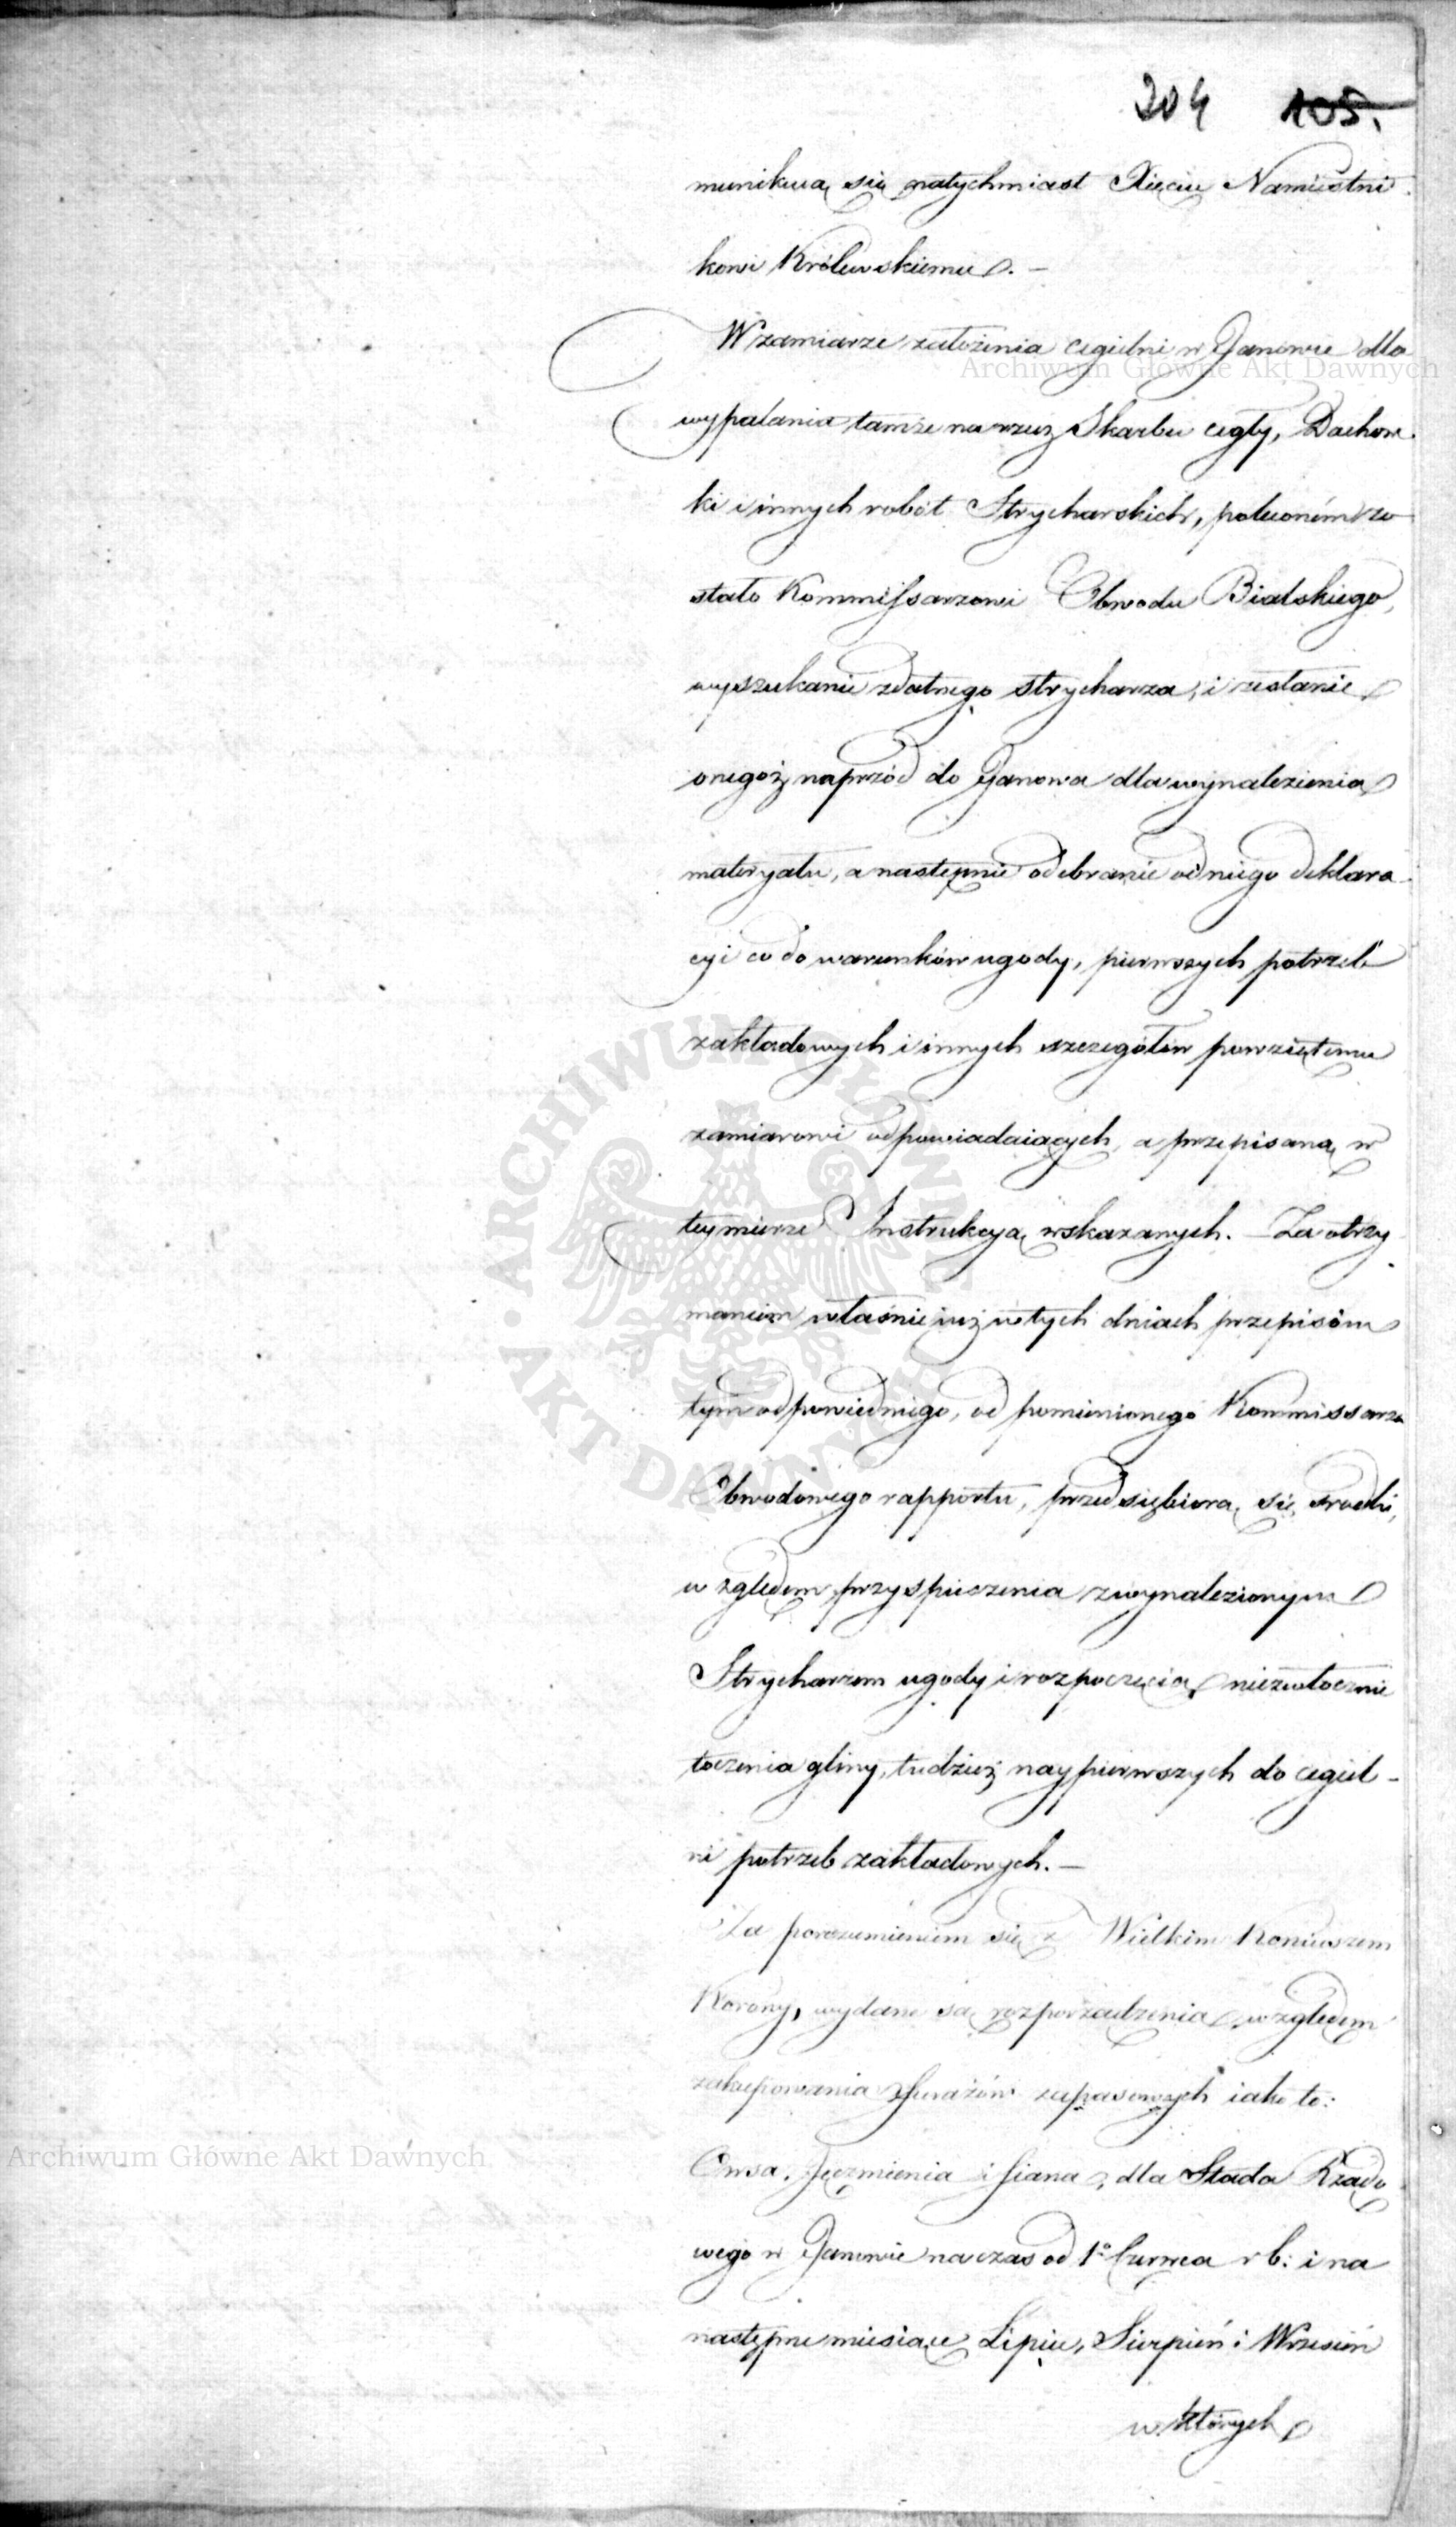 204 105.
munikuą się natychmiast Xięciu Namiestni-
kowi Królewskiemu. —
W zamiarze założenia cegielni w Janowie dla
Archiwum Główne Akt Dawnych
wypalania tamże na rzecz Skarbu cegły, Dachow-
ki i innych robót Strycharskich, poleconém zo-
stało Kommissarzowi Obwodu Bialskiego,
wyszukanie zdatnego strycharza, i zesłanie
onegoż naprzód do Janowa dla wynalezienia
materyału, a następnie odebranie od niego deklara-
cyi co do warunków ugody, pierwszych potrzeb
zakładowych i innych szczegółów powziętemu
zamiarowi odpowiadaiących, a przepisaną w
tey mierze Instrukcyą wskazanych. — Za otrzy-
maniem właśnie iuż w tych dniach przepisom
tym odpowiedniego, od pomienionego Kommissarza
Obwodowego rapportu, przedsiębiorą się srodki,
względem przyspieszenia z wynalezionym
Strycharzem ugody i rozpoczęcia niezwłocznie
toczenia gliny, tudzież naypierwszych do cegiel-
ni potrzeb zakładowych. —
Za porozumieniem się z Wielkim Koniuszem
Korony, wydane są rozporządzenia względem
zakupowania furażów zapasowych iako to:
Archiwum Główne Akt Dawnych
Owsa, Jęczmienia i Siana, dla Stada Rządo-
wego w Janowie na czas od 1º Czerwca r b: i na
następne miesiące Lipiec, Sierpień i Wrzesień
w których
ARCHIWUM GŁÓWNE • AKT DAWNYCH •